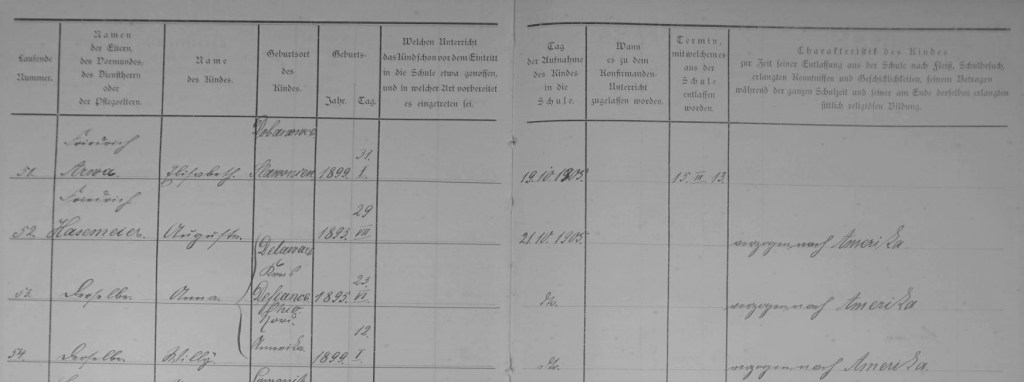 Laufende
Nummer.
Namen
der Eltern,
des Vormundes,
des Dienstherrn
oder
der Pflegeeltern.
Name
des Kindes.
Geburtsort
des
Kindes.
Geburts-
Jahr. Tag.
Welchen Unterricht
das Kind schon vor dem Eintritt
in die Schule etwa genossen,
und in welcher Art vorbereitet
es eingetreten sei.
Tag
der Aufnahme
des Kindes
in die
Schule.
Wann
es zu dem
Konfirmanden-
Unterricht
zugelassen worden.
Termin,
mit welchem es
aus der
Schule
entlassen
worden.
Charakteristik des Kindes
zur Zeit seiner Entlassung aus der Schule nach Fleiß, Schulbesuch,
erlangten Kenntnissen und Geschicklichkeiten, seinem Betragen
während der ganzen Schulzeit und seiner am Ende derselben erlangten
sittlich religiösen Bildung.
Friedrich
31.
51. Arwa Elisabeth Slawonien 1899. I. 19.10.1905. 15. III. 13.
Friedrich
29
52. Hasemeier. Auguste 1893. VIII. 21.10.1905. verzogen nach Amerika.
Delaware
23.
53. Derselbe Anna Defiance 1895. VI. do. verzogen nach Amerika
Ohio
Nord.
12.
54. Derselbe Willy Amerika. 1899. I. do. verzogen nach Amerika.